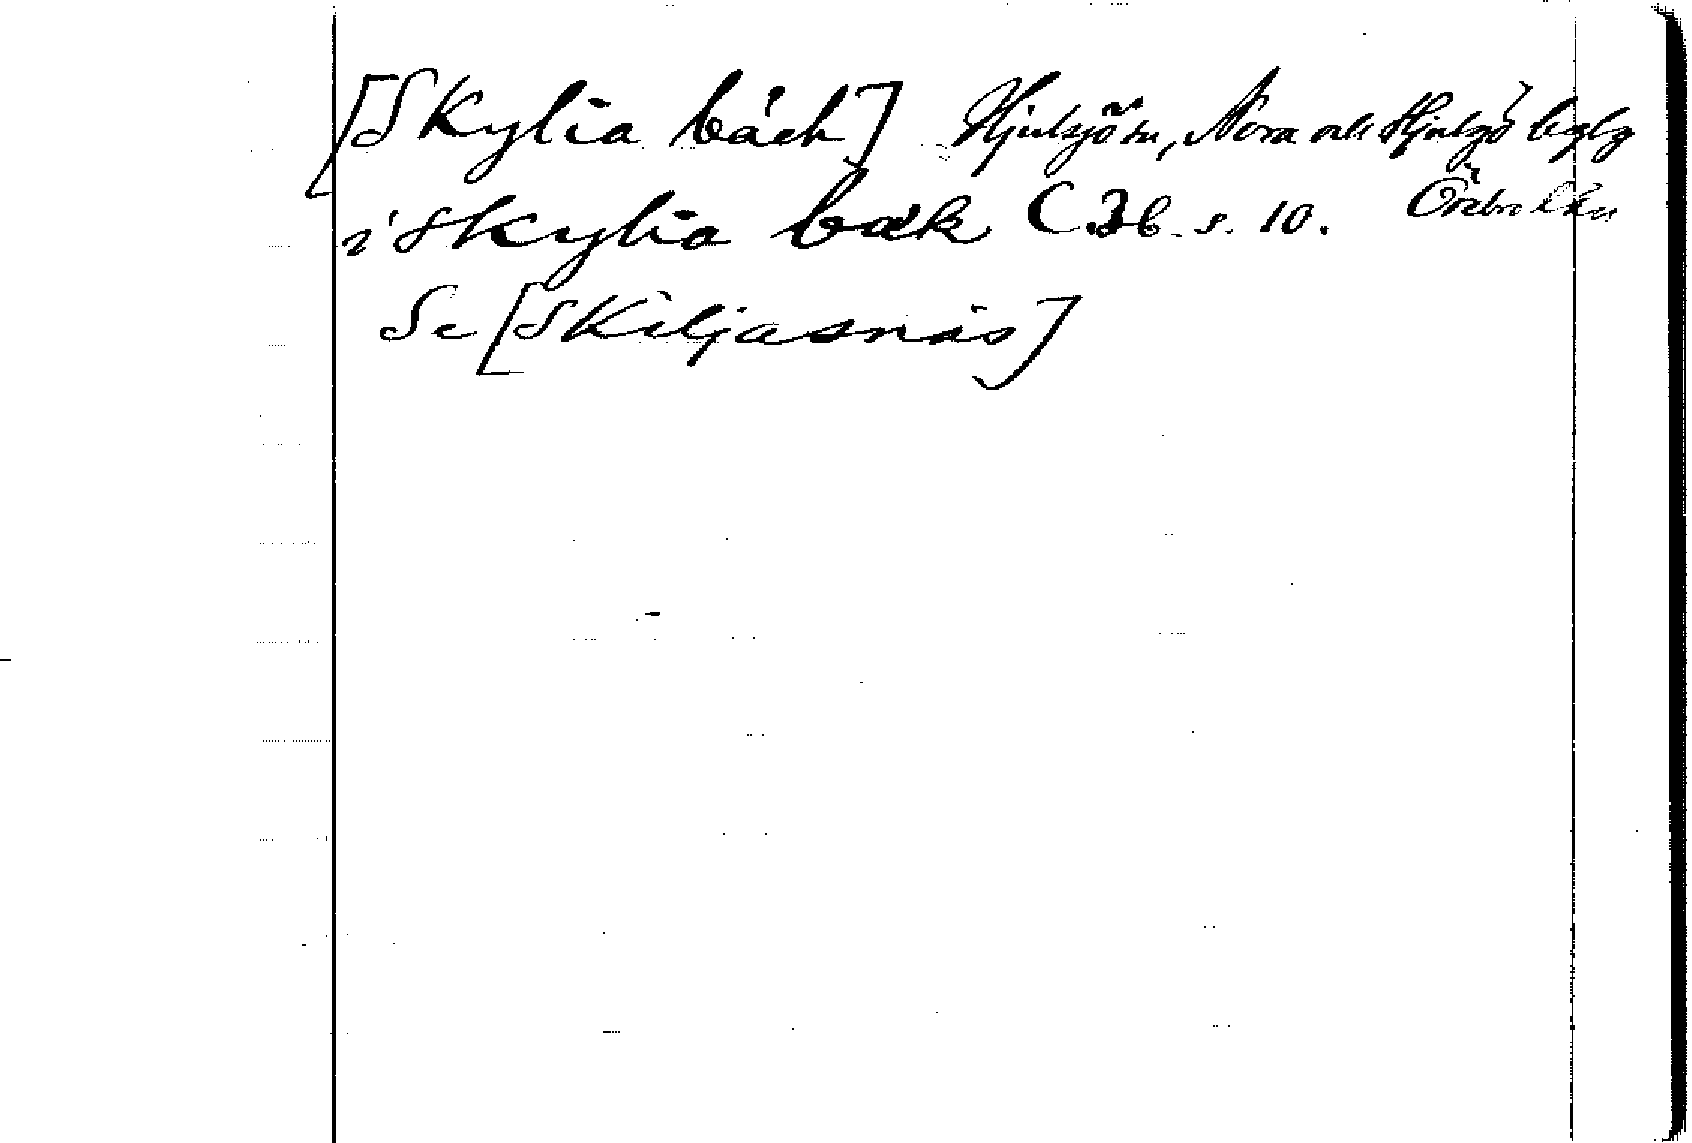 [Skylia bäck] Hjulsjö sn, Nora och Hjulsjö bgslg
i skylia bæk C 36 s. 10. Örebro län
Se [Skiljasnäs]